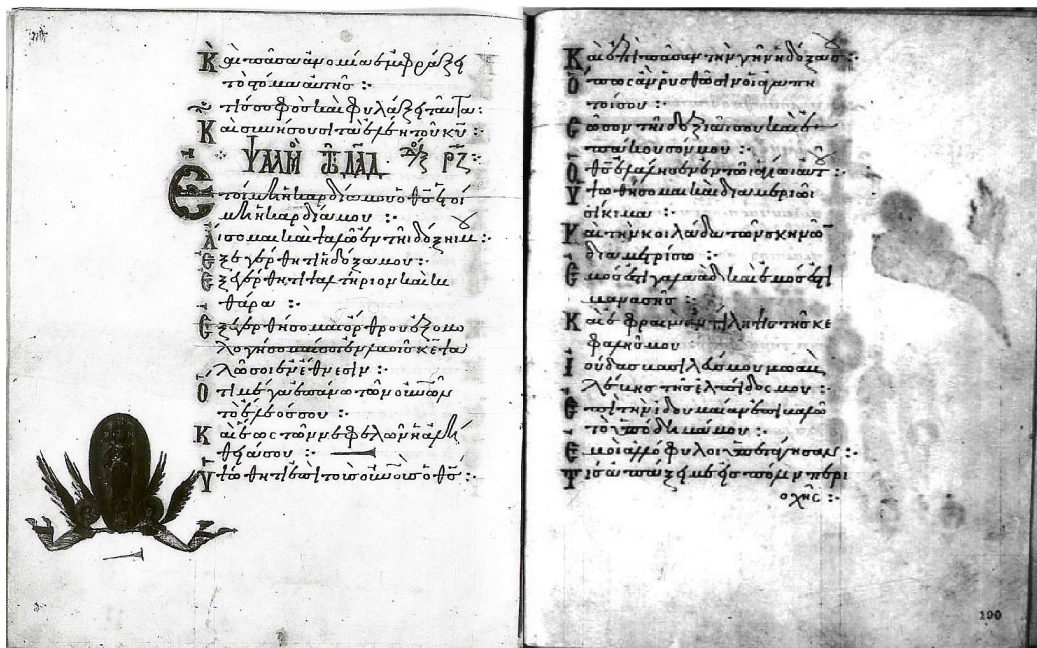 Καὶ πᾶσα ἀνομία ἐμφράξει
τὸ στόμα αὐτῆς :
τίς σοφὸς καὶ φυλάξει ταῦτα :
Καὶ συνήσουσι τὰ ἐλέη τοῦ κυ :
ΨΑΛΜ ΤΩ ΔΑΔ ΡΖ :
Ἑτοίμη ἡ καρδία μου ὁ θς ἑτοί
μη ἡ καρδία μου :
Ἄισομαι καὶ ψαλῶ ἐν τῆι δόξηι μου :
Ἐξεγέρθητι ἡ δόξα μου :
Ἐξεγέρθητι ψαλτήριον καὶ κι
θάρα :
Ἐξεγερθήσομαι ὄρθρου ἐξομο
λογήσομαί σοι ἐν λαοῖς κε ψα
λῶ σοι ἐν ἔθνεσιν :
Ὅτι μέγα ἐπάνω τῶν οὐνῶν
τὸ ἔλεός σου :
Καὶ ἕως τῶν νεφελῶν ἡ ἀλή
θειά σου :
Ὑψώθητι ἐπὶ τοὺς οὐνοὺς ὁ θς :
Καὶ ἐπὶ πᾶσαν τὴν γῆν ἡ δόξα σου :
Ὅπως ἂν ῥυσθῶσιν οἱ ἀγαπη
τοί σου :
Σῶσον τῆι δεξιᾶι σου καὶ ἐ
πάκουσόν μου :
Ὁ θς ἐλάλησεν ἐν τῶι ἁγίωι αὐτοῦ
Ὑψωθήσομαι καὶ διαμεριῶ
σίκιμα :
Καὶ τὴν κοιλάδα τῶν σκηνῶν
διαμετρίσω :
Ἐμός ἐστι γαλαὰδ καὶ ἐμός ἐστι
μανασῆς :
Καὶ ἐφραὶμ ἀντίληψις τῆς κε
φαλῆς μου :
Ἰούδας βασιλεύς μου μωὰβ
λέβης τῆς ἐλπίδος μου :
Ἐπὶ τὴν ἰδουμαίαν ἐπιβαλῶ
τὸ ὑπόδημά μου :
Ἐμοὶ ἀλλόφυλοι ὑπετάγησαν :
Τίς ἀπάξει με εἰς πόλιν περι
οχῆς :
100